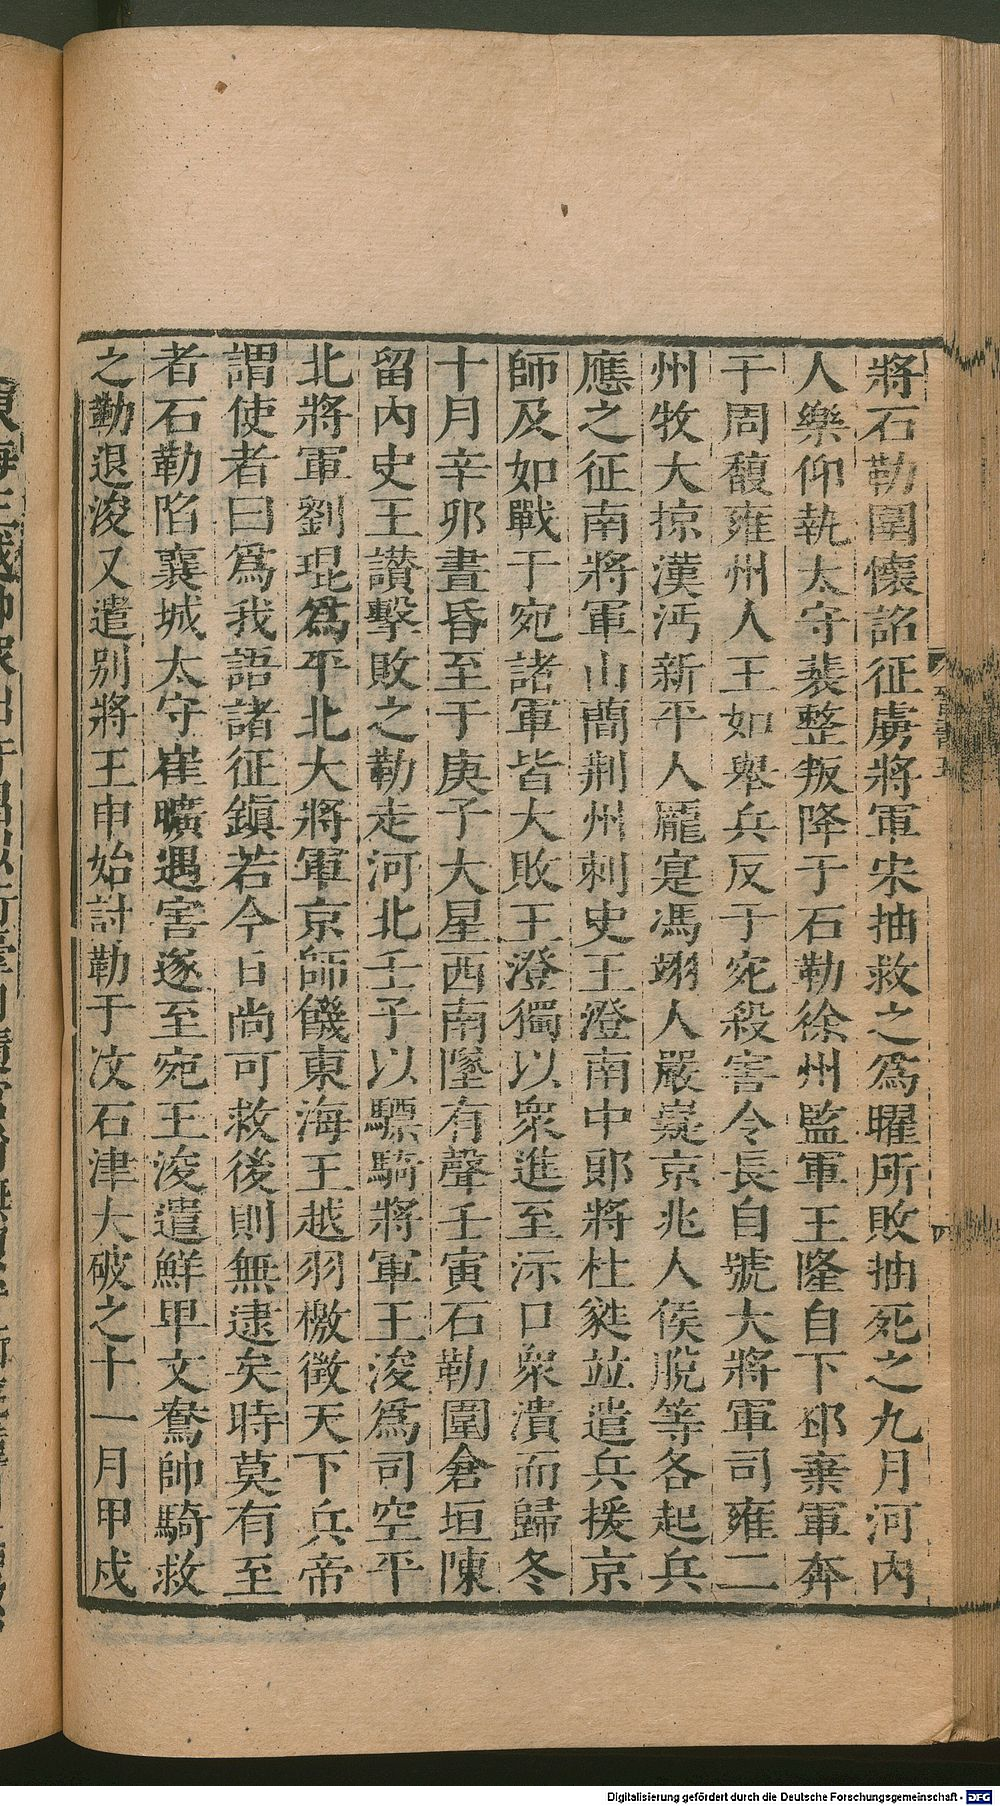 將石勒圍懷詔征虜將軍宋抽救之爲曜所敗抽死之九月河內
人樂仰執太守裴整叛降于石勒徐州監軍王隆自下邳棄軍奔
于周馥雍州人王如舉兵反于宛殺害令長自號大將軍司雍二
州牧大掠漢沔新平人龐寔馮翊人嚴嶷京兆人侯脫等各起兵
應之征南將軍山簡荆州刺史王澄南中郎將杜蕤竝遣兵援京
師及如戰于宛諸軍皆大敗王澄獨以衆進至沶口衆潰而歸冬
十月辛卯晝昏至于庚子大星西南墜有聲壬寅石勒圍倉垣陳
留內史王讃擊敗之勒走河北壬子以驃騎將軍王浚爲司空平
北將軍劉琨爲平北大將軍京師饑東海王越羽檄徵天下兵帝
謂使者曰爲我語諸征鎭若今日尚可救後則無逮矣時莫有至
者石勒陷襄城太守崔曠遇害遂至宛王浚遣鮮卑文鴦帥騎救
之勒退浚又遣別將王申始討勒于汶石津大破之十一月甲戍
Digitalisierung gefördert durch die Deutsche Forschungsgemeinschaft - DFG